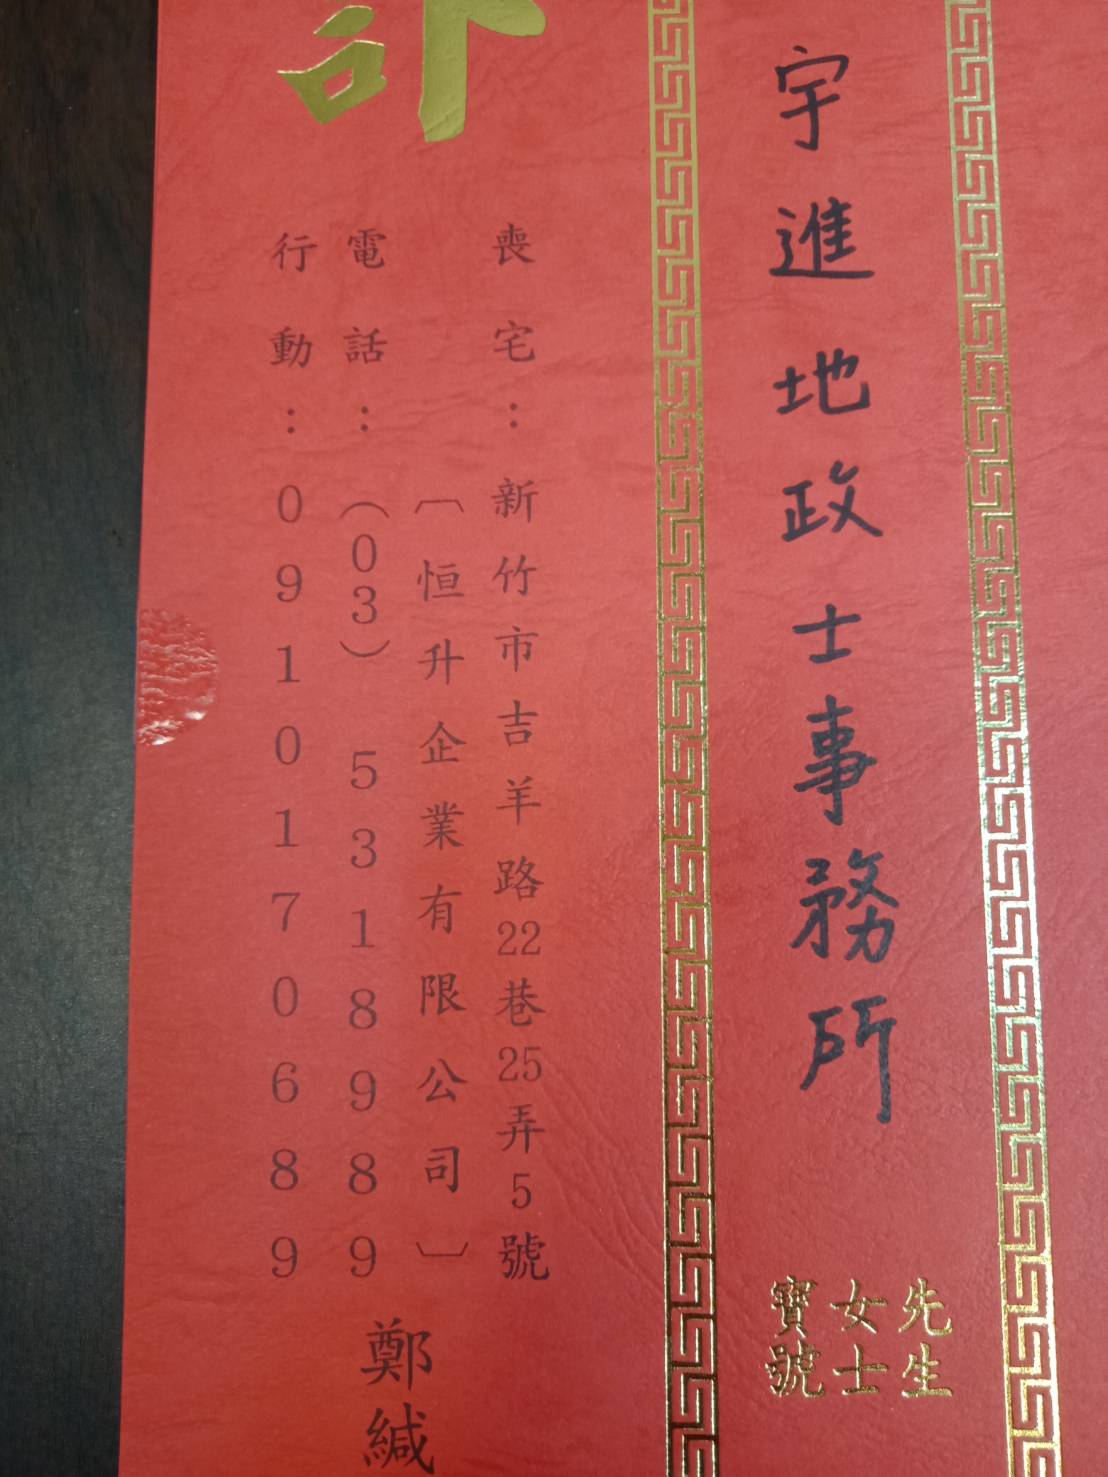 宇進地政士事務所
先生
女士
寶號
訃
喪宅：新竹市吉羊路22巷25弄5號
〔恒升企業有限公司〕
電話：（03）5318989
行動：0910170689
鄭緘